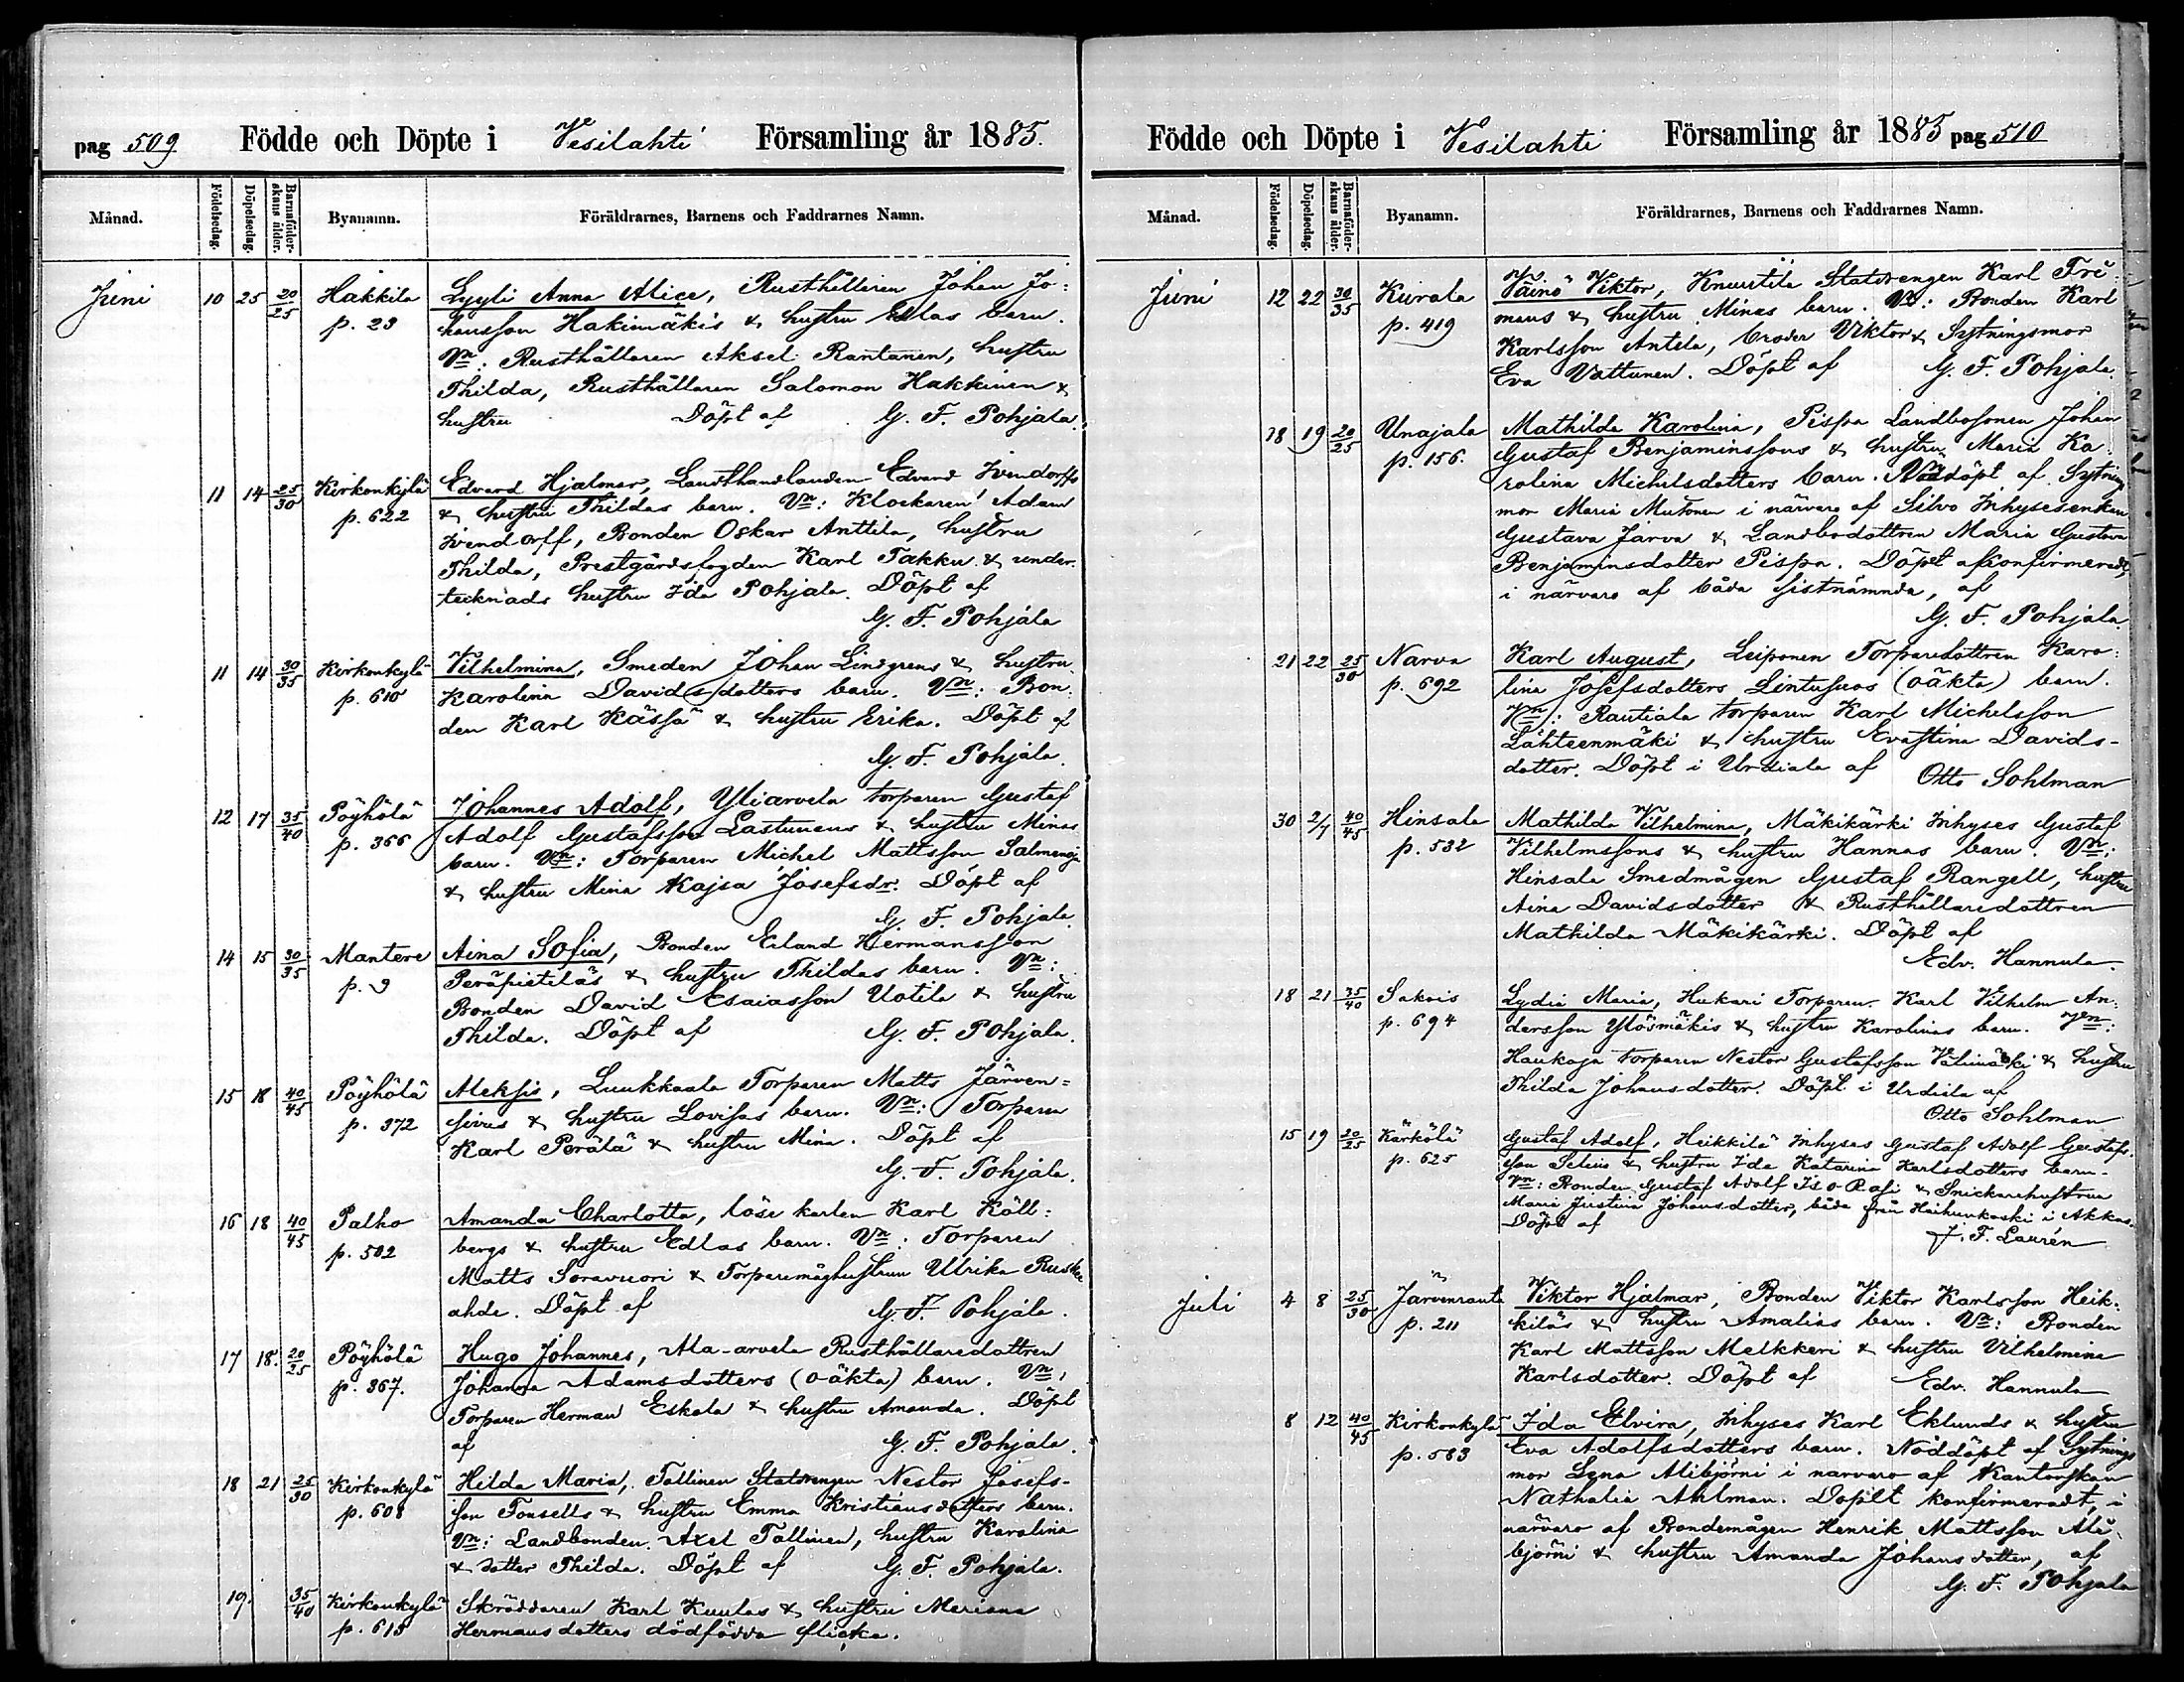 pag 509 Födde och Döpte i Vesilahti Församling år 1885.
Månad. Födelsedag. Döpelsedag. Barnaföderskans ålder. Byanamn. Föräldrarnes, Barnens och Faddrarnes Namn.
Juni 10 25 20/25 Hakkila Lyyli Anna Alice, Rusthållaren Johan Jo=
p. 23 hansson Hakimäkis & hustru Edlas barn.
Vn: Rusthållaren Aksel Rantanen, hustru
Thilda, Rusthållaren Salomon Hakkinen &
hustru Döpt af G. F. Pohjala.
11 14 25/30 Kirkonkylä Edvard Hjalmar, Landthandlanden Edvard Ivendorffs
p. 622 & hustru Thildas barn. Vn: Klockaren Adam
Ivendorff, Bonden Oskar Anttila, hustru
Thilda, Prestgårdsfogden Karl Takku & under-
tecknads hustru Ida Pohjala. Döpt af
G. F. Pohjala
11 14 30/35 Kirkonkylä Vilhelmina, Smeden Johan Lindgrens & hustru
p. 610 Karolina Davidsdotters barn. Vn: Bon-
den Karl Kässä & hustru Erika. Döpt af
G. F. Pohjala.
12 17 35/40 Pöyhölä Johannes Adolf, Yliarvela torparen Gustaf
p. 366 Adolf Gustafsson Lastunens & hustru Minas
barn. Vn: Torparen Michel Mattsson Salmenoja
& hustru Mina Kajsa Josefsdr. Döpt af
G. F. Pohjala.
14 15 30/35 Mantere Aina Sofia, Bonden Erland Hermansson
p. 9 Peräpietiläs & hustru Thildas barn. Vn:
Bonden David Esaiasson Uotila & hustru
Thilda. Döpt af G. F. Pohjala.
15 18 40/45 Pöyhölä Aleksis, Luukkaala Torparen Matts Järven=
p. 372 sivus & hustru Lovisas barn. Vn: Torparen
Karl Perälä & hustru Mina. Döpt af
G. F. Pohjala.
16 18 40/45 Palho Amanda Charlotta, löse karlen Karl Köll=
p. 502 bergs & hustru Edlas barn. Vn: Torparen
Matts Soravuori & Torparemåghustrun Ulrika Ruske
ahde. Döpt af G. F. Pohjala.
17 18. 20/25 Pöyhölä Hugo Johannes, Ala-arvela Rusthållaredottren
p. 367. Johanna Adamsdotters (oäkta) barn. Vn:
Torparen Herman Eskola & hustru Amanda. Döpt
af G. F. Pohjala.
18 21 25/30 Kirkonkylä Hilda Maria, Tallinen Statdrengen Nestor Josefs-
p. 608 son Tonsells & hustru Emma Kristiansdotters barn.
Vn: Landbonden Axel Tallinen, hustru Karolina
& dotter Thilda. Döpt af G. F. Pohjala.
19. 35/40 Kirkonkylä Skräddaren Karl Kuulas & hustru Mariana
p. 615 Hermansdotters dödfödda flicka.
Födde och Döpte i Vesilahti Församling år 1885 pag 510
Månad. Födelsedag. Döpelsedag. Barnaföderskans ålder. Byanamn. Föräldrarnes, Barnens och Faddrarnes Namn.
Juni 12 22 30/35 Kurala Väinö Viktor, Knuutila Statdrengen Karl Fri-
p. 419 mans & hustru Minas barn. Vn: Bonden Karl
Karlsson Antela, broder Viktor & Sytningsmor
Eva Vattunen. Döpt af G. F. Pohjala.
18 19 20/25 Unajala Mathilda Karolina, Pispa Landbosonen Johan
p. 156. Gustaf Benjaminssons & hustru Maria Ka-
rolina Michelsdotters barn. Nöddöpt af Sytnings
mor Maria Mutonen i närvaro af Silvo Inhysesenkan
Gustava Järva & Landbodottren Maria Gustava
Benjaminsdotter Pispa. Döpet afkonfirmeradt,
i närvaro af båda sistnämnda, af
G. F. Pohjala.
21 22 25/30 Narva Karl August, Leiponen Torparedottren Karo-
p. 692 lina Josefsdotters Lintusuos (oäkta) barn.
Vn: Rautiala torparen Karl Michelsson
Lähteenmäki & hustru Evastina Davids-
dotter. Döpt i Urdiala af Otto Sohlman
30 2/7 40/45 Hinsala Mathilda Vilhelmina, Mäkikärki Inhyses Gustaf
p. 532 Vilhelmssons & hustru Hannas barn. Vn:
Hinsala Smedmågen Gustaf Rangell, hustru
Aina Davidsdotter & Rusthållaredottren
Mathilda Mäkikärki. Döpt af
Edv. Hannula.
18 21 35/40 Sakois Lydia Maria, Hukari Torparen Karl Vilhelm An-
p. 694 dersson Ylösmäkis & hustru Karolinas barn. Vn:
Haukoja torparen Nestor Gustafsson Välimäki & hustru
Thilda Johansdotter. Döpt i Urdiala af
Otto Sohlman
15 19 20/25 Kärkölä Gustaf Adolf, Heikkilä Inhyses Gustaf Adolf Gustafs-
p. 625 son Selins & hustru Ida Katarina Karlsdotters barn.
Vn: Bonden Gustaf Adolf Iso-Rasi & Snickarehustrun
Maria Justina Johansdotter, båda från Haihunkoski i Akkas.
Döpt af J. F. Laurén
Juli 4 8 25/30 Järvenranta Viktor Hjalmar, Bonden Viktor Karlsson Heik-
p. 211 kiläs & hustru Amalias barn. Vn: Bonden
Karl Mattsson Melkkeri & hustru Vilhelmina
Karlsdotter. Döpt af Edv. Hannula
8 12 40/45 Kirkonkylä Ida Elvira, Inhyses Karl Eklunds & hustru
p. 583 Eva Adolfsdotters barn. Nöddöpt af Sytnings
mor Lena Alibjörni i närvaro af Kantorskan
Nathalia Ahlman. Döpet konfirmeradt, i
närvaro af Bondemågen Henrik Mattsson Ali-
björni & hustru Amanda Johansdotter, af
G. F. Pohjala